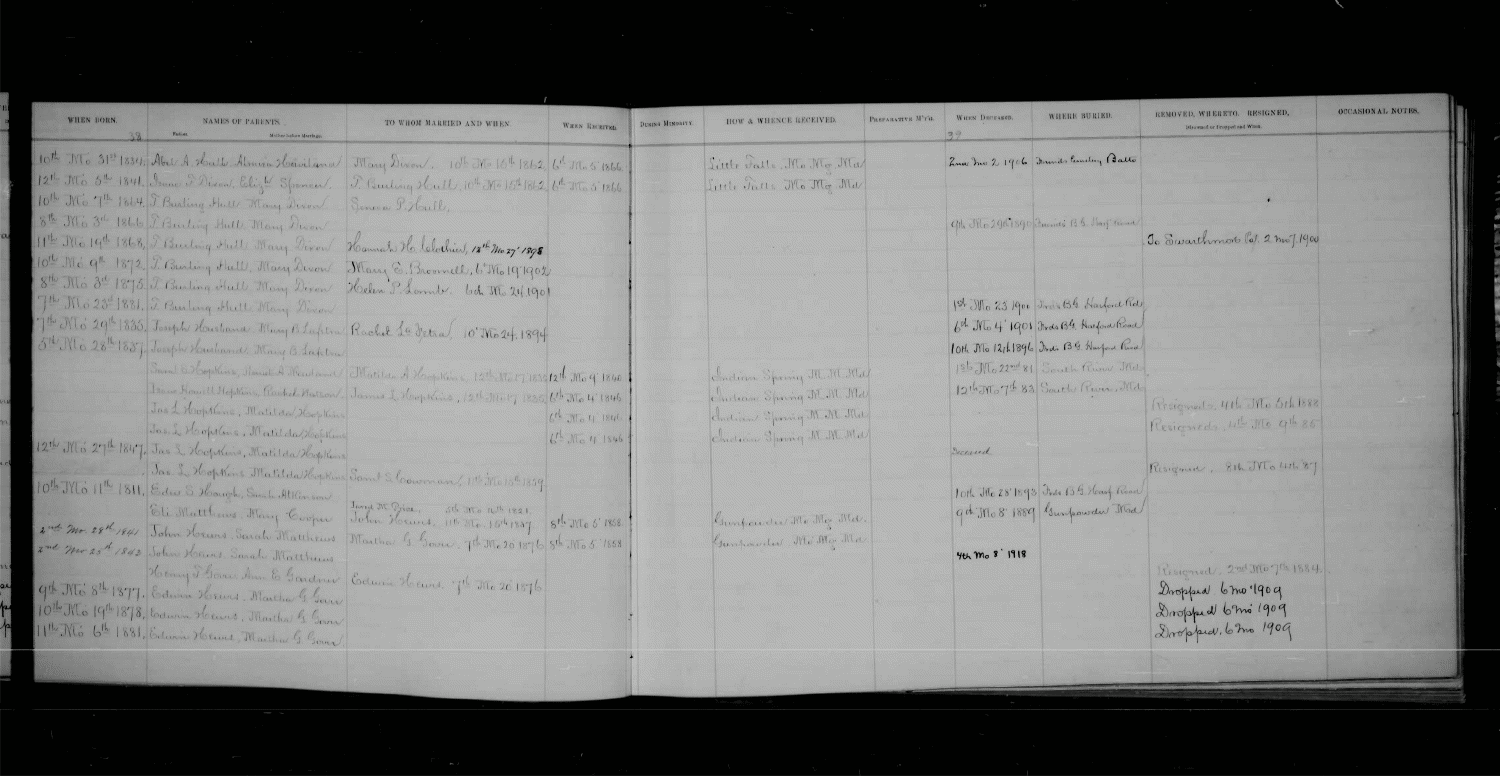 WHEN BORN. NAMES OF PARENTS. TO WHOM MARRIED AND WHEN. WHEN RECEIVED. DURING MINORITY. HOW & WHENCE RECEIVED. PREPARATIVE M'T'G. WHEN DECEASED. WHERE BURIED. REMOVED, WHERETO. RESIGNED, OCCASIONAL NOTES.
Father. Mother before Marriage. Disowned or Dropped and When.
38 39
10th Mo 31st 1834. Abel A. Hull Almira Haviland Mary Dixon. 10th Mo 15th 1862 6th Mo 5' 1866 Little Falls Mo Mtg Md 2nd mo 2 1906 Friends Cemetery Balto
12th Mo 5th 1841. Isaac F Dixon, Elizth Spencer T. Burling Hull 10th Mo 15th 1862 6th Mo 5' 1866 Little Falls Mo Mtg Md
10th Mo 7th 1864. T Burling Hull Mary Dixon Simeon P. Hull,
8th Mo 3rd 1866. T Burling Hull Mary Dixon 9th Mo 29th 1890 Friends B.G. Harf
11th Mo 19th 1868. T Burling Hull Mary Dixon Hannah H. Clothier, Mo 27' 1898 To Swarthmore Pa. 2 mo 7. 1900
10th Mo 9th 1872. T. Burling Hull, Mary Dixon Mary E. Brownell, 6' Mo 19' 1902
8th Mo 3rd 1875. T. Burling Hull Mary Dixon Helen P. Lamb. 6th Mo 24 1901
7th Mo 23rd 1881. T Burling Hull Mary Dixon 1st Mo 23 1901 Frds B.G Harford Rd
7th Mo 29th 1835. Joseph Husband Mary B. Lafetra Rachel La Fetra, 10' Mo 24. 1894 6th Mo 4' 1901 Frds B.G Harford Road
5th Mo 28th 1837. Joseph Husband Mary B. Lafetra 10th Mo 12th 1896 Frds B.G Harford Road
Hopkins, Matilda A Hopkins, 12th Mo 17 12th Mo 9' 1840 Indian Spring M.M. Md Mo 22nd 81 South River Md
Hopkins, Rachel James L Hopkins, 12th Mo 17 6th Mo 4' 1846 Indian Spring M.M. Md 12th Mo 7th 83 South River, Md
Jas L Hopkins, Matilda Hopkins 6th Mo 4' 1846 Indian Spring M.M. Md Resigned, 4th Mo 5th 1888
Jas. L Hopkins, Matilda Hopkins 6th Mo 4' 1846 Indian Spring M.M. Md Resigned, Mo. 9th 85
12th Mo 27th 1847. Jas L Hopkins, Matilda Hopkins deceased
Jas L Hopkins Matilda Hopkins Saml S Cowman, 11th Mo 15th 1859 Resigned. 8th Mo 4th 87
10th Mo 11th 1811. S. Hough, Sarah Atkinson 10th Mo 28' 1893 Frds B.G. Harf Road
Eli Matthews, Mary Cooper Jared M. Price, 5th Mo 16th 1821. John Hewes. 11th Mo 15th 1837. 8th Mo 5' 1858. Gunpowder Mo Mtg Md. 9th Mo 8' 1889 Gunpowder Md
2nd Mo. 28th 1841 John Hewes, Sarah Matthews Martha G. Gover, 7th Mo 20' 1876 8th Mo 5' 1858 Gunpowder Mo Mtg Md
2nd Mo. 25th 1843 John Hewes, Sarah Matthews 4th mo 3' 1918
Henry T Gover Ann E Gardner Edwin Hewes. 7th Mo 20' 1876. Resigned, 2nd Mo 7th 1884.
9th Mo 8th 1877. Edwin Hewes, Martha G Gover Dropped 6 mo 1909
10th Mo 19th 1878. Edwin Hewes, Martha G. Gover Dropped 6 mo 1909
11th Mo 6th 1881. Edwin Hewes, Martha G. Gover Dropped, 6 mo 1909